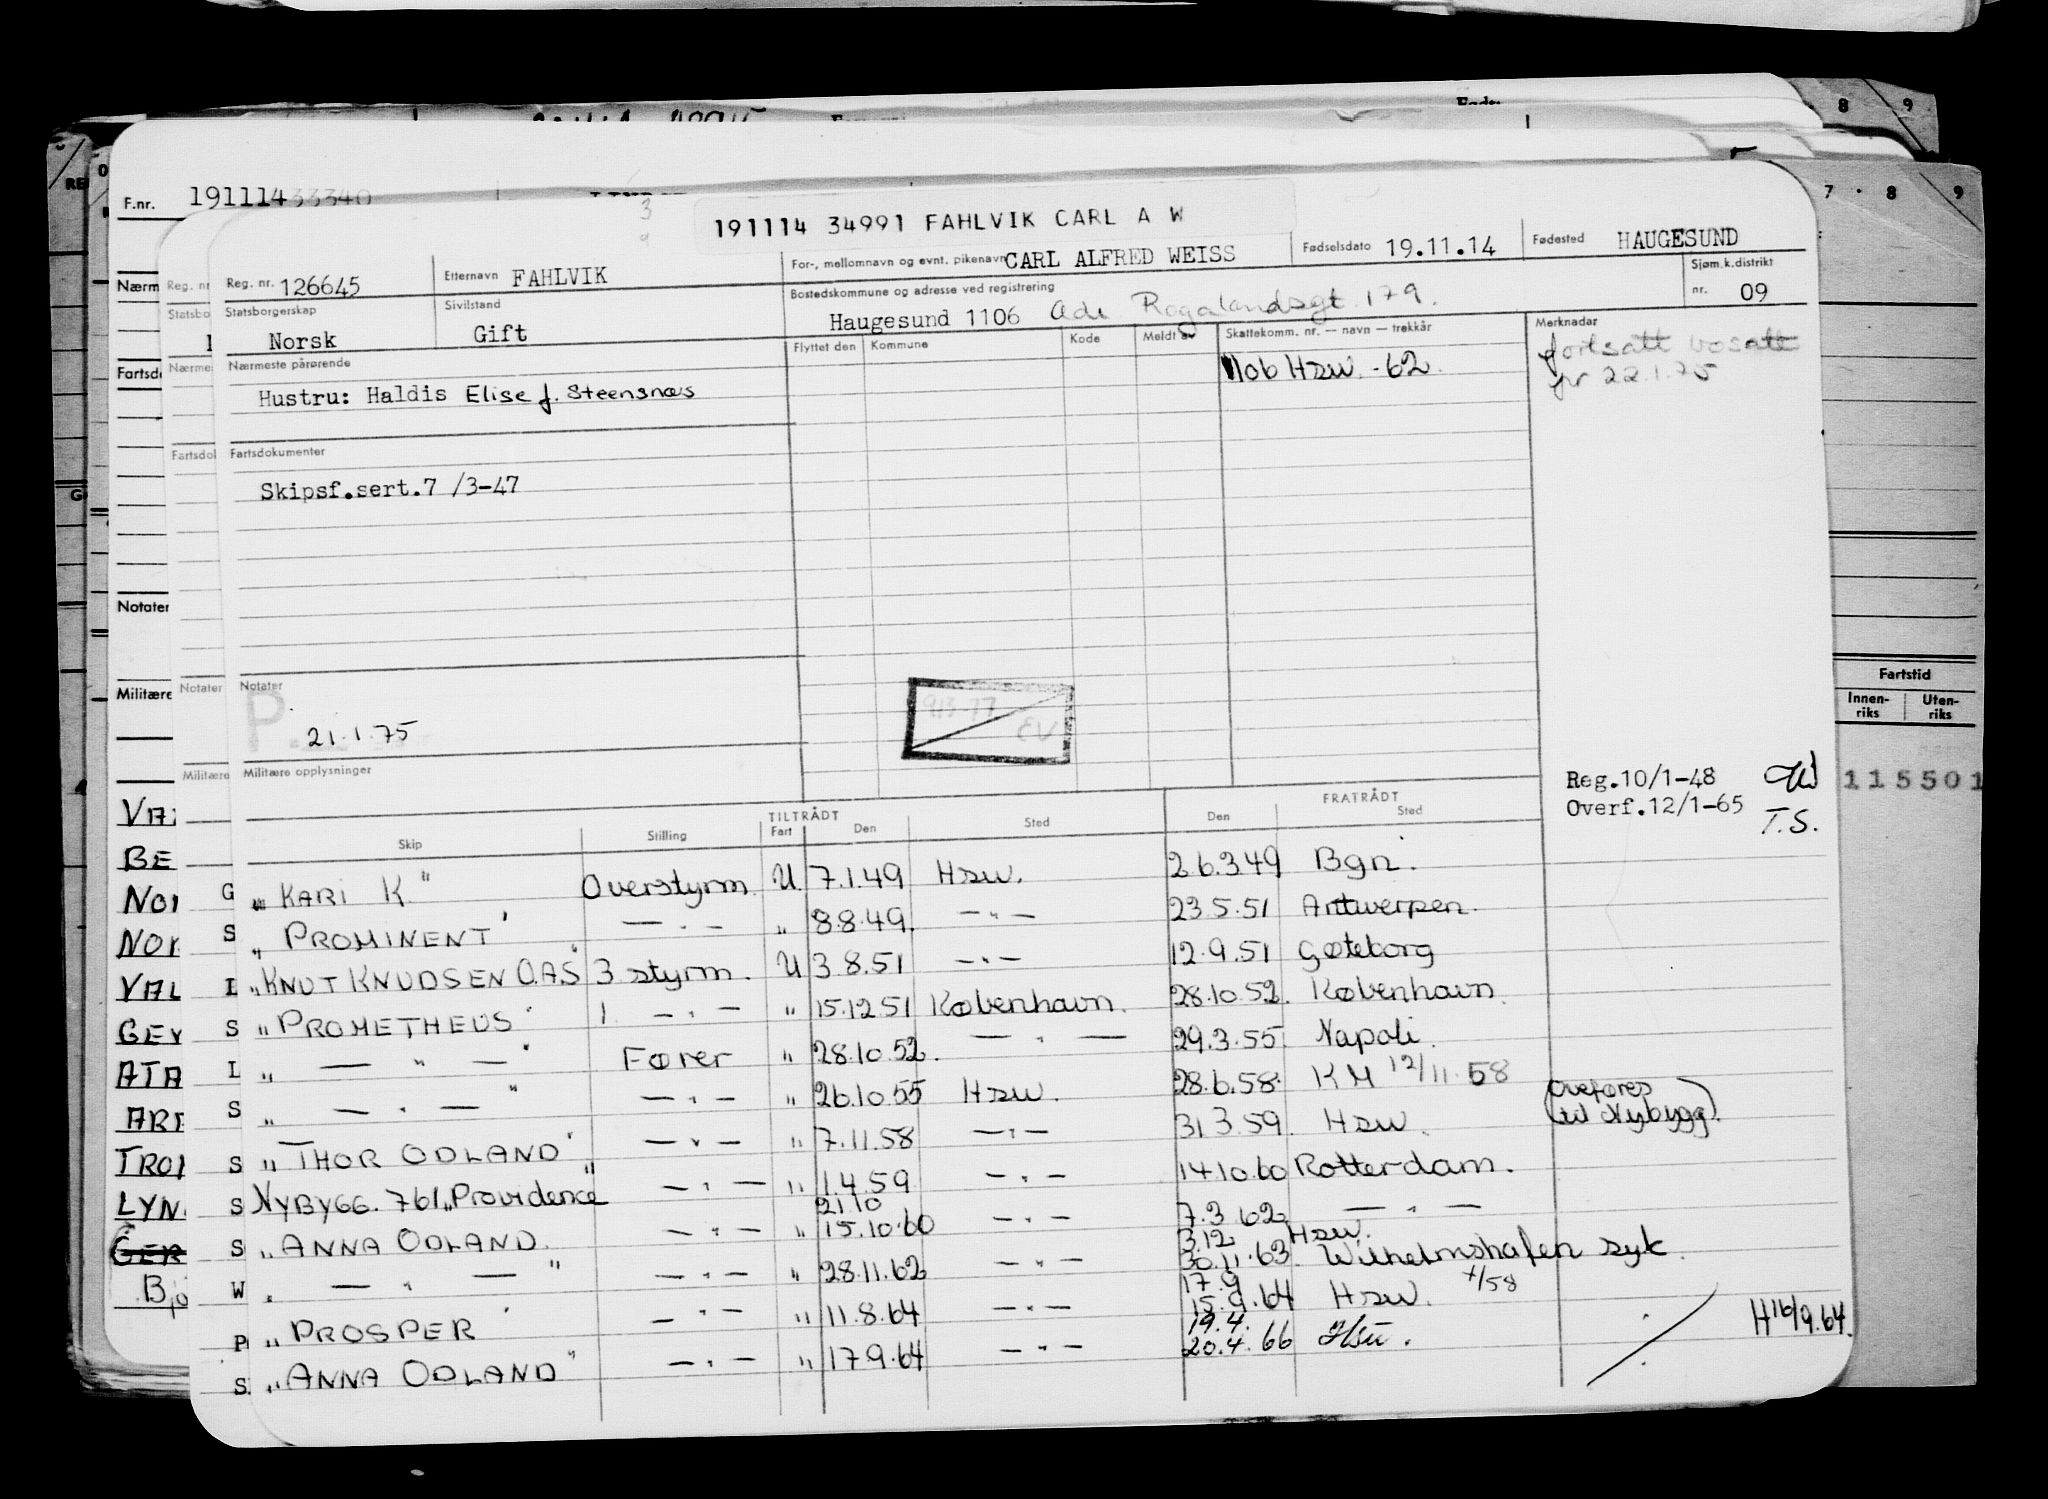 F.nr. 19111433340
191114 34991 FAHLVIK CARL A W
Reg. nr. 126645 Etternavn FAHLVIK For-, mellomnavn og evnt. pikenavn CARL ALFRED WEISS Fødselsdato 19.11.14 Fødested HAUGESUND
Statsborgerskap Norsk Sivilstand Gift Bostedskommune og adresse ved registrering Haugesund 1106 Adr. Rogalandsgt. 179. Sjøm.k.distrikt nr. 09
Nærmeste pårørende Flyttet den Kommune Kode Meldt av Skattekomm. nr. — navn — trekkår Merknader
Hustru: Haldis Elise f. Steensnæs 1106 Hsw. -62. fortsatt bosatt
pr 22.1.75
Fartsdokumenter
Skipsf.sert.7 /3-47
Notater
P.
21.1.75
EV
Militære opplysninger
Reg.10/1-48
Overf.12/1-65 T.S.
115501
Fartstid
Innen-riks Uten-riks
TILTRÅDT FRATRÅDT
Skip Stilling Fart Den Sted Den Sted
"KARI K" Overstyrm. U 7.1.49 Hsw. 26.3.49 Bgn.
"PROMINENT" — " — " 8.8.49. — " — 23.5.51 Antwerpen.
"KNUT KNUDSEN O.A.S" 3 styrm. U 3.8.51 — " — 12.9.51 Gøteborg
"PROMETHEUS" 1. — " — " 15.12.51 København. 28.10.52. København.
" — " — " Fører " 28.10.52. — " — 29.3.55. Napoli.
" — " — " — " — " 26.10.55 Hsw. 28.6.58. KM 12/11.58
"THOR ODLAND" — " — " 7.11.58 — " — 31.3.59. Hsw. (overføres til Nybygg).
NYBYGG. 761 "Providence" — " — " 1.4.59 — " — 14.10.60 Rotterdam.
"ANNA ODLAND." — " — " 21.10 15.10.60 — " — 7.3.62 — " —
" — " — " — " — " 28.11.62 — " — 3.12 30.11.63. Hsw. Wilhelmshafen syk.
"PROSPER" — " — " 11.8.64 — " — 17.9 15.9.64 Hsw. x/58
"ANNA ODLAND" — " — " 17.9.64 — " — 19.4. 20.4.66 Hsw. H16/9.64.